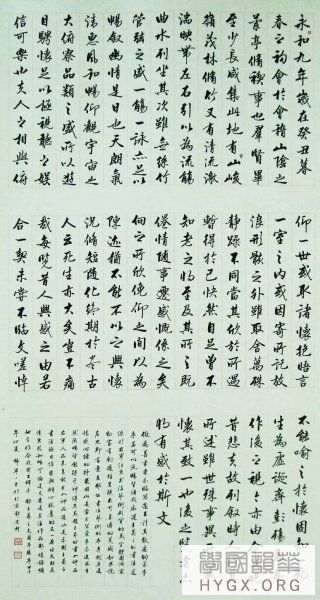 永和九年歲在癸丑暮
春之初會於會稽山陰之
蘭亭脩禊事也群賢畢
至少長咸集此地有山峻
領茂林脩竹又有清流激
湍映帶左右引以為流觴
曲水列坐其次雖無絲竹
管弦之盛一觴一詠亦足以
暢敘幽情是日也天朗氣
清惠風和暢仰觀宇宙之
大俯察品類之盛所以遊
目騁懷足以極視聽之娛
信可樂也夫人之相與俯
仰一世或取諸懷抱晤言
一室之內或因寄所託放
浪形骸之外雖取舍萬殊
靜躁不同當其欣於所遇
暫得於己快然自足不
知老之將至及其所之既
倦情隨事遷感慨係之矣
向之所欣俛仰之間以為
陳迹猶不能不以之興懷
況脩短隨化終期於盡古
人云死生亦大矣豈不痛
哉每覽昔人興感之由若
合一契未嘗不臨文嗟悼
不能喻之於懷固知一死
生為虛誕齊彭殤為妄
作後之視今亦由今之視
昔悲夫故列敘時人錄其
所述雖世殊事異所以興
懷其致一也後之攬者亦
將有感於斯文
學國韻華
HYGX.ORG